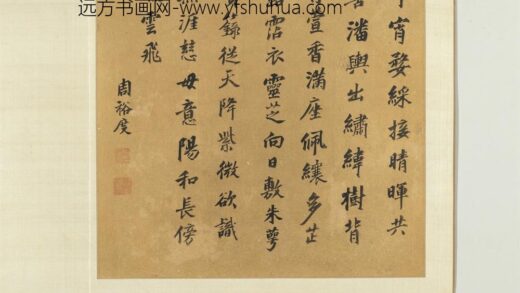 远方书画网 www.yfshuhua.com
宵婺綵接晴暉共
潘輿出繡緯樹背
宣香滿座佩纕多芷
霑衣靈芝向日敷朱萼
籙從天降紫微欲識
涯慈母意陽和長傍
雲飛
周裕度